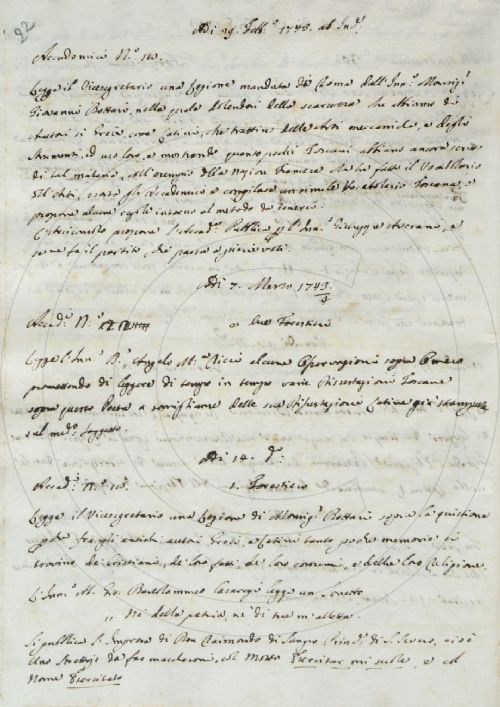 22
Adì 29. Febb.º 1748. ab Inc.
Accademici N.º 10.
Legge il Vicesegretario una Lezione mandata di Roma dall'Inn.º Monsig.
Giovanni Bottari, nella quale dolendosi della scarsezza che abbiamo di
Autori sì Greci, come Latini, che trattin delle Arti meccaniche, e degli
Strumenti, ed uso loro, e mostrando quanto pochi Toscani abbiano ancora scritto
di tal materia, coll'esempio della Nazion Franzese che ha fatto il Vocabolario
dell'Arti, esorta gli Accademici a compilare un simile Vocabolario Toscano, e
propone alcune regole intorno al metodo da tenersi.
L'Arciconsolo propone l'Accad. Pubblica p l'Inn. Giuseppe Averani, e
se ne fa il partito, che passa a pieni voti.
Adì 7. Marzo 1748/9
Accad. N.º Due Forestieri
Legge l'Inn. Angelo M. Ricci alcune Osservazioni sopra Omero
promettendo di leggere di tempo in tempo varie Dissertazioni Toscane
sopra questo Poeta a somiglianza delle sue Dissertazioni Latine già stampate
sul med.º soggetto.
Adì 14. d.
Accad. N.º 10. 1. Forestiero
Legge il Vicesegretario una Lezione di Monsig. Bottari sopra la quistione
perchè fra gli antichi autori Greci, e Latini tanto poche memorie si
trovino de' Cristiani, de' loro fatti, de' loro costumi, e della loro Religione.
L'Inn. M. Bartolommeo Casaregi legge un Sonetto
„ Nè della patria, nè di me m'alletta.
Si pubblica l'Impresa di Don Raimondo di Sangro Princ. di S. Severo, cioè
Uno Staccio da far maccheroni, col Motto Esercitar mi suole, e col
Nome Esercitato